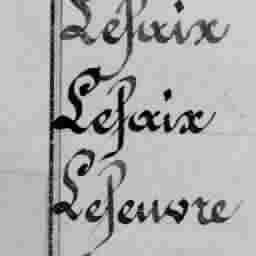 Lefaix
Lefaix
Lefeuvre